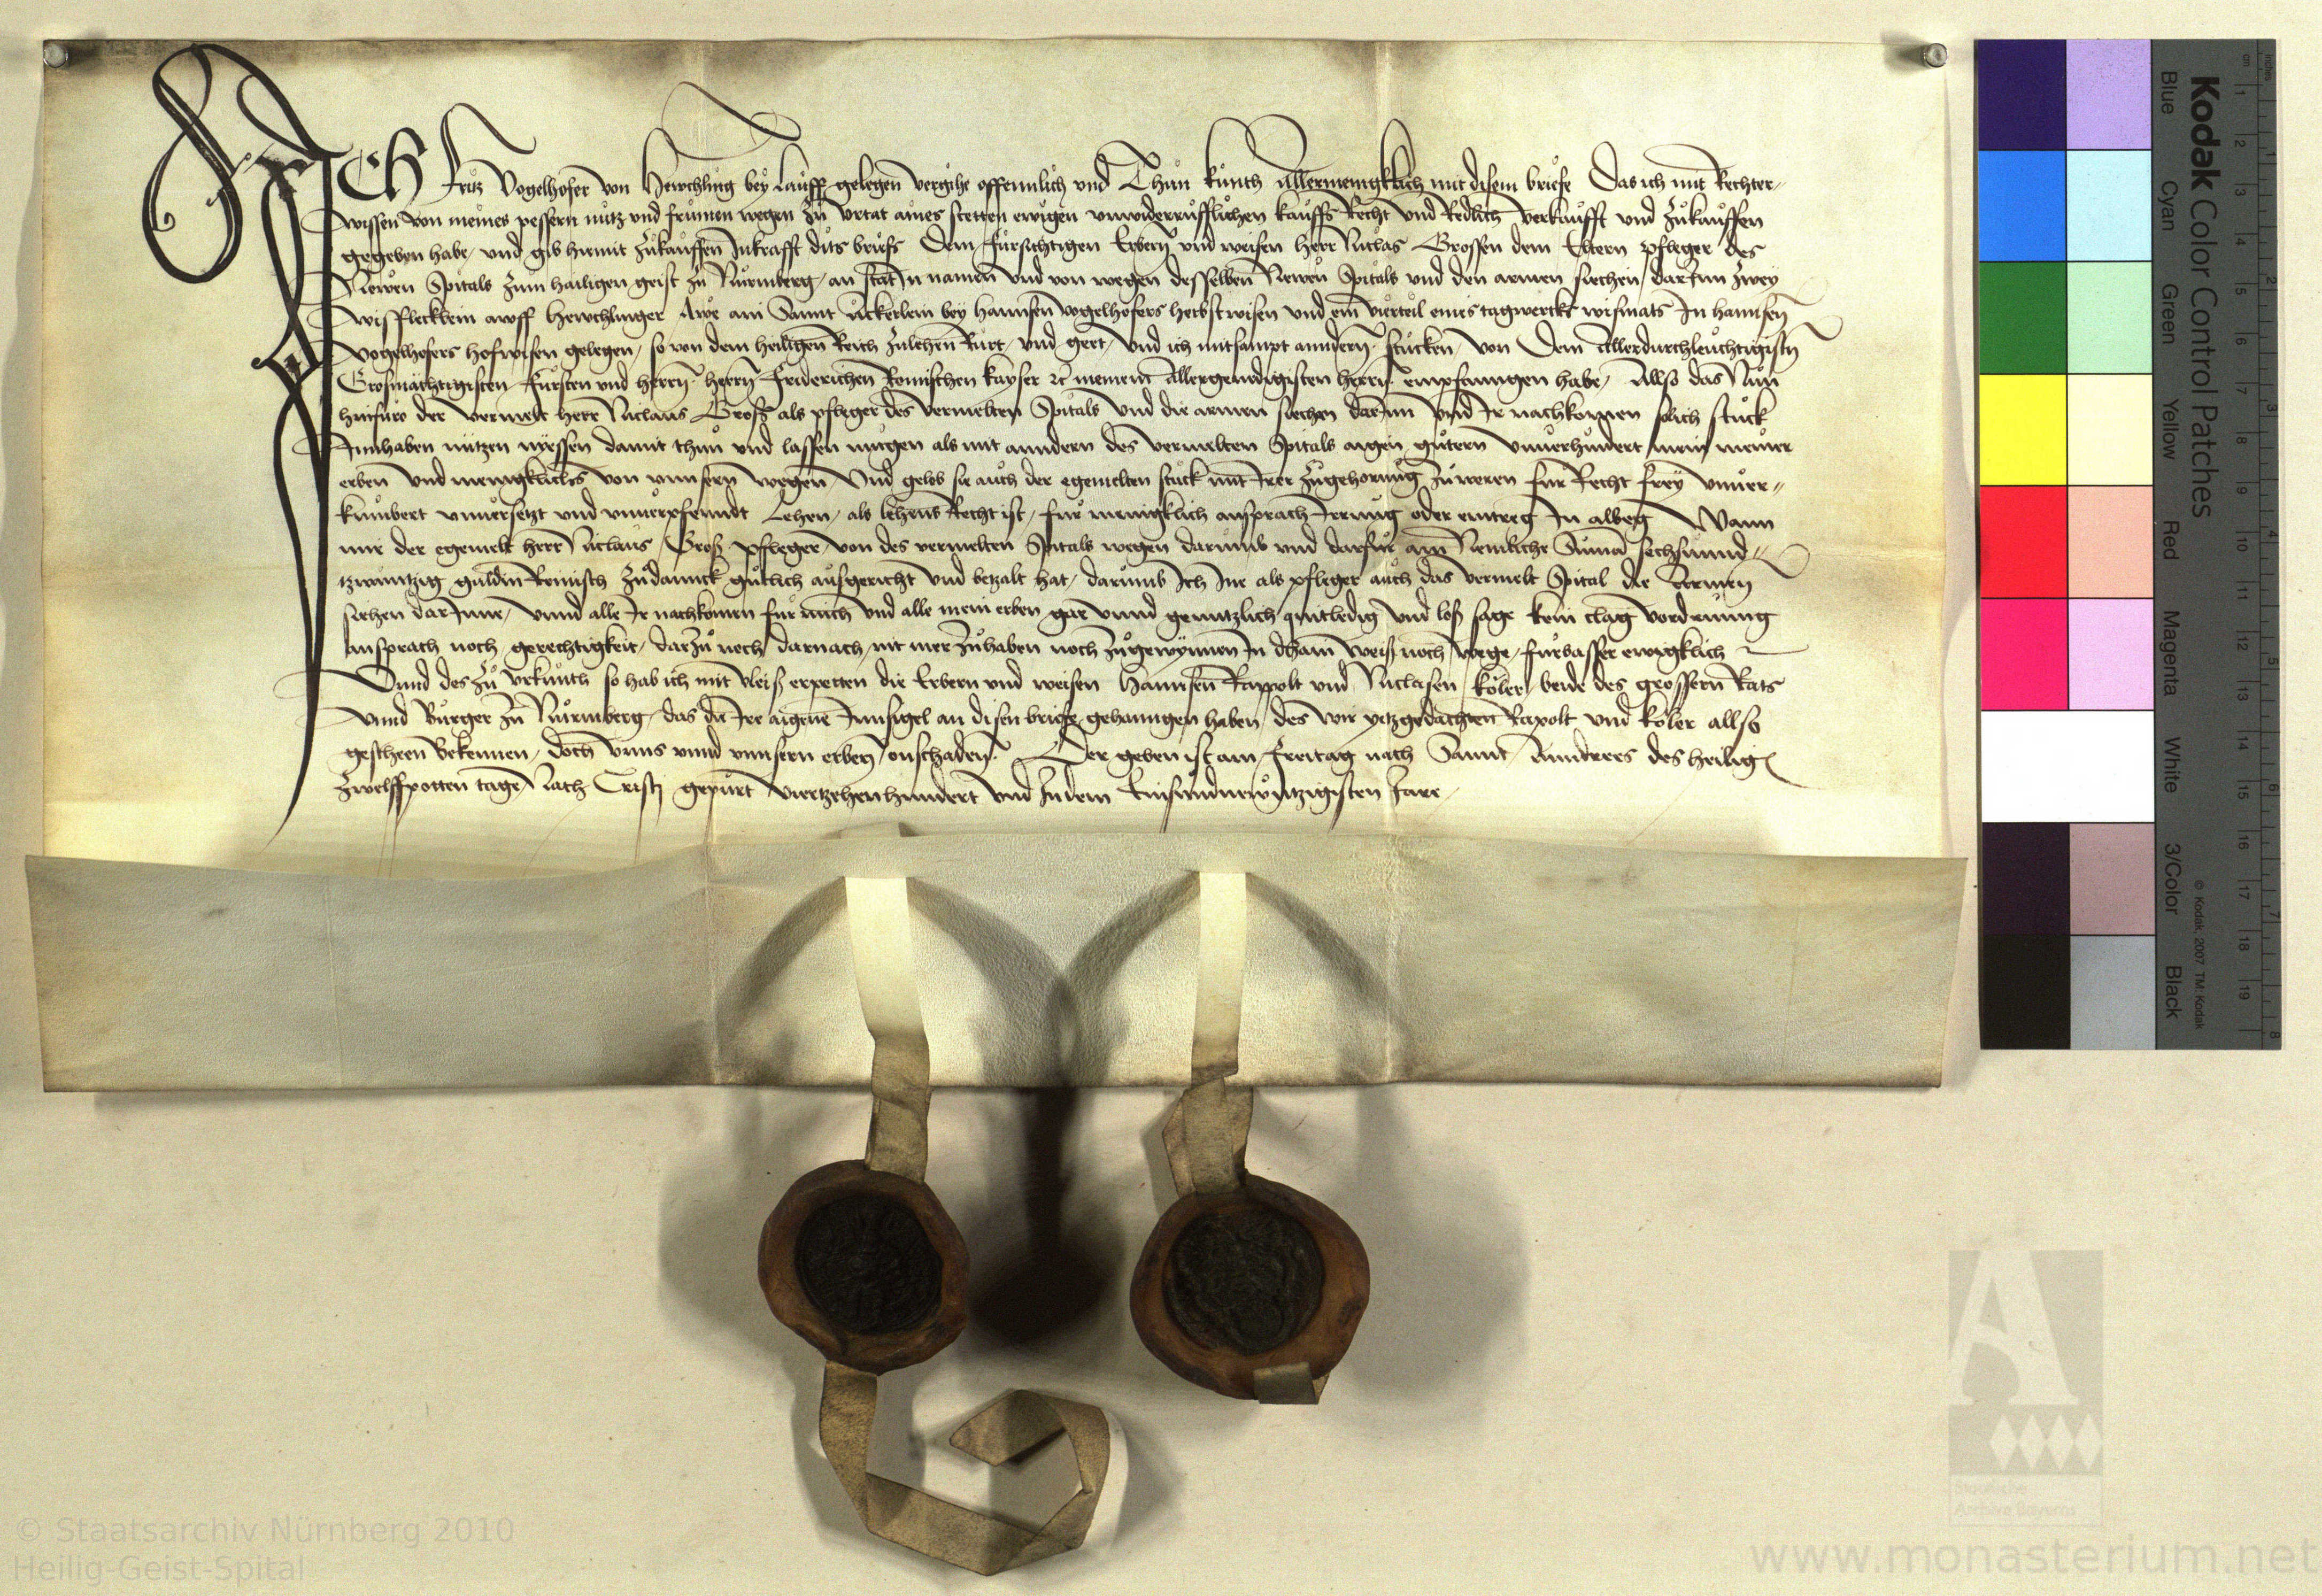 ICH Fritz Vogelhofer von Hewchling bey Lauff gelegen vergihe offennlich und Thun kunth Allermenigklich mit disem briefe Das ich mit Rechter
wissen von meines pessern nutz und frumen wegen zu Urtat aines stetten ewigen unwiderrufflichen kauffs Recht und Redlich verkaufft und zukauffen
gegeben habe und gib hiemit zukauffen Inkrafft dits briefs Dem fursichtigen Erbern und weisen herr Niclas Grossen dem Eltern pfleger des
Newen Spitals zum hailigen geist zu Nuremberg an stat In namen und von wegen desselben Newen Spitals und den armen siechen darInn zwey
wisflecklein awff Hewchlinger Awe am Sannt Ackerlein bey hannsen vogelhofers herbstwisen und ein vierteil eines tagwercks wismats In hannsen
vogelhofers hofwisen gelegen so von dem heiligen Reich zulehen Rurt und geet und ich mitsampt anndern stucken von Dem Allerdurchleuchtigisten
Grosmachtigisten Fursten und herrn herrn Friderichen Romischen kayser etc meinem Allergenedigisten herrn empfanngen habe Allso das Nun
hinfuro der vermelt herr Niclaus Gross als pfleger des vermelten Spitals und die armen siechen darInn und Ir nachkomen solich stuck
Innhaben nutzen nyessen damit thun und lassen mugen als mit anndern des vermelten Spitals aigen gutern unverhindert mein meiner
erben und menigklichs von unnsern wegen Und gelob sie auch der egemelten stuck mit Irer zugehorung zuweren fur Recht frey unver
kumbert unversetzt und unverpfenndt Lehen als lehens Recht ist fur menigklich ansprach Irrung oder eintrag In alweg Wann
mir der egemelt herr Niclaus Gross pfleger von des vermelten Spitals wegen darumb und darfur ain Nemliche Suma sechsunnd
tzwaintzig guldin Reinisch zudannck gutlich ausgericht und betzalt hat darumb Ich Ine als pfleger auch das vermelt Spital die Armen
siechen darInne unnd alle Ir nachkomen fur mich und alle mein erben gar unnd genntzlich quitledig und loß sage kein clag vordrung
ansprach noch gerechtigkeit darzu noch darnach nit mer zuhaben noch zugewynnen In dhain weiß noch wege furbasser ewigklich
Unnd des zu urkunth so hab ich mit vleiß erpetten die Erbern und weisen Hannsen Rappolt und Niclasen koler beide des grossern Rats
unnd Burger zu Nuremberg das die Ire aigene Innsigel an disen briefe gehanngen haben des wir yetzgedachten Rapolt und koler allso
gescheen bekennen doch unns unnd unnsern erben onschaden Der geben ist am Freitag nach Sannt Anndrees des heilig
zwelffpotten tage Nach Cristi gepurt viertzehenhundert und In dem Einsundnewntzigisten Jare
Kodak Color Control Patches
Blue Cyan Green Yellow Red Magenta White 3/Color Black
© Kodak, 2007 TM: Kodak
cm 1 2 3 4 5 6 7 8 9 10 11 12 13 14 15 16 17 18 19
inches 1 2 3 4 5 6 7 8
Staatliche
Archive Bayerns
© Staatsarchiv Nürnberg 2010
Heilig-Geist-Spital
www.monasterium.net